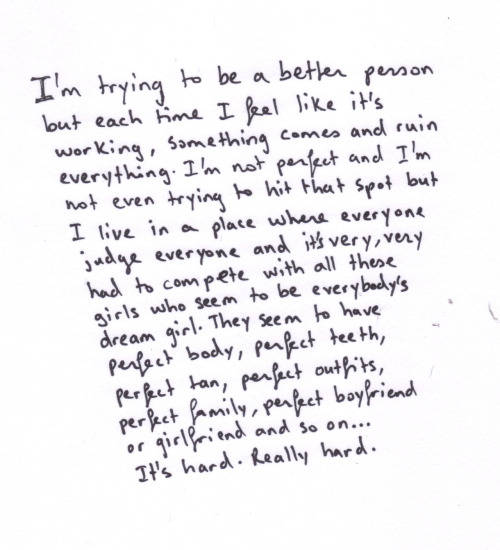 I'm trying to be a better person
but each time I feel like it's
working, something comes and ruin
everything. I'm not perfect and I'm
not even trying to hit that spot but
I live in a place where everyone
judge everyone and it's very, very
had to compete with all these
girls who seem to be everybody's
dream girl. They seem to have
perfect body, perfect teeth,
perfect tan, perfect outfits,
perfect family, perfect boyfriend
or girlfriend and so on...
It's hard. Really hard.